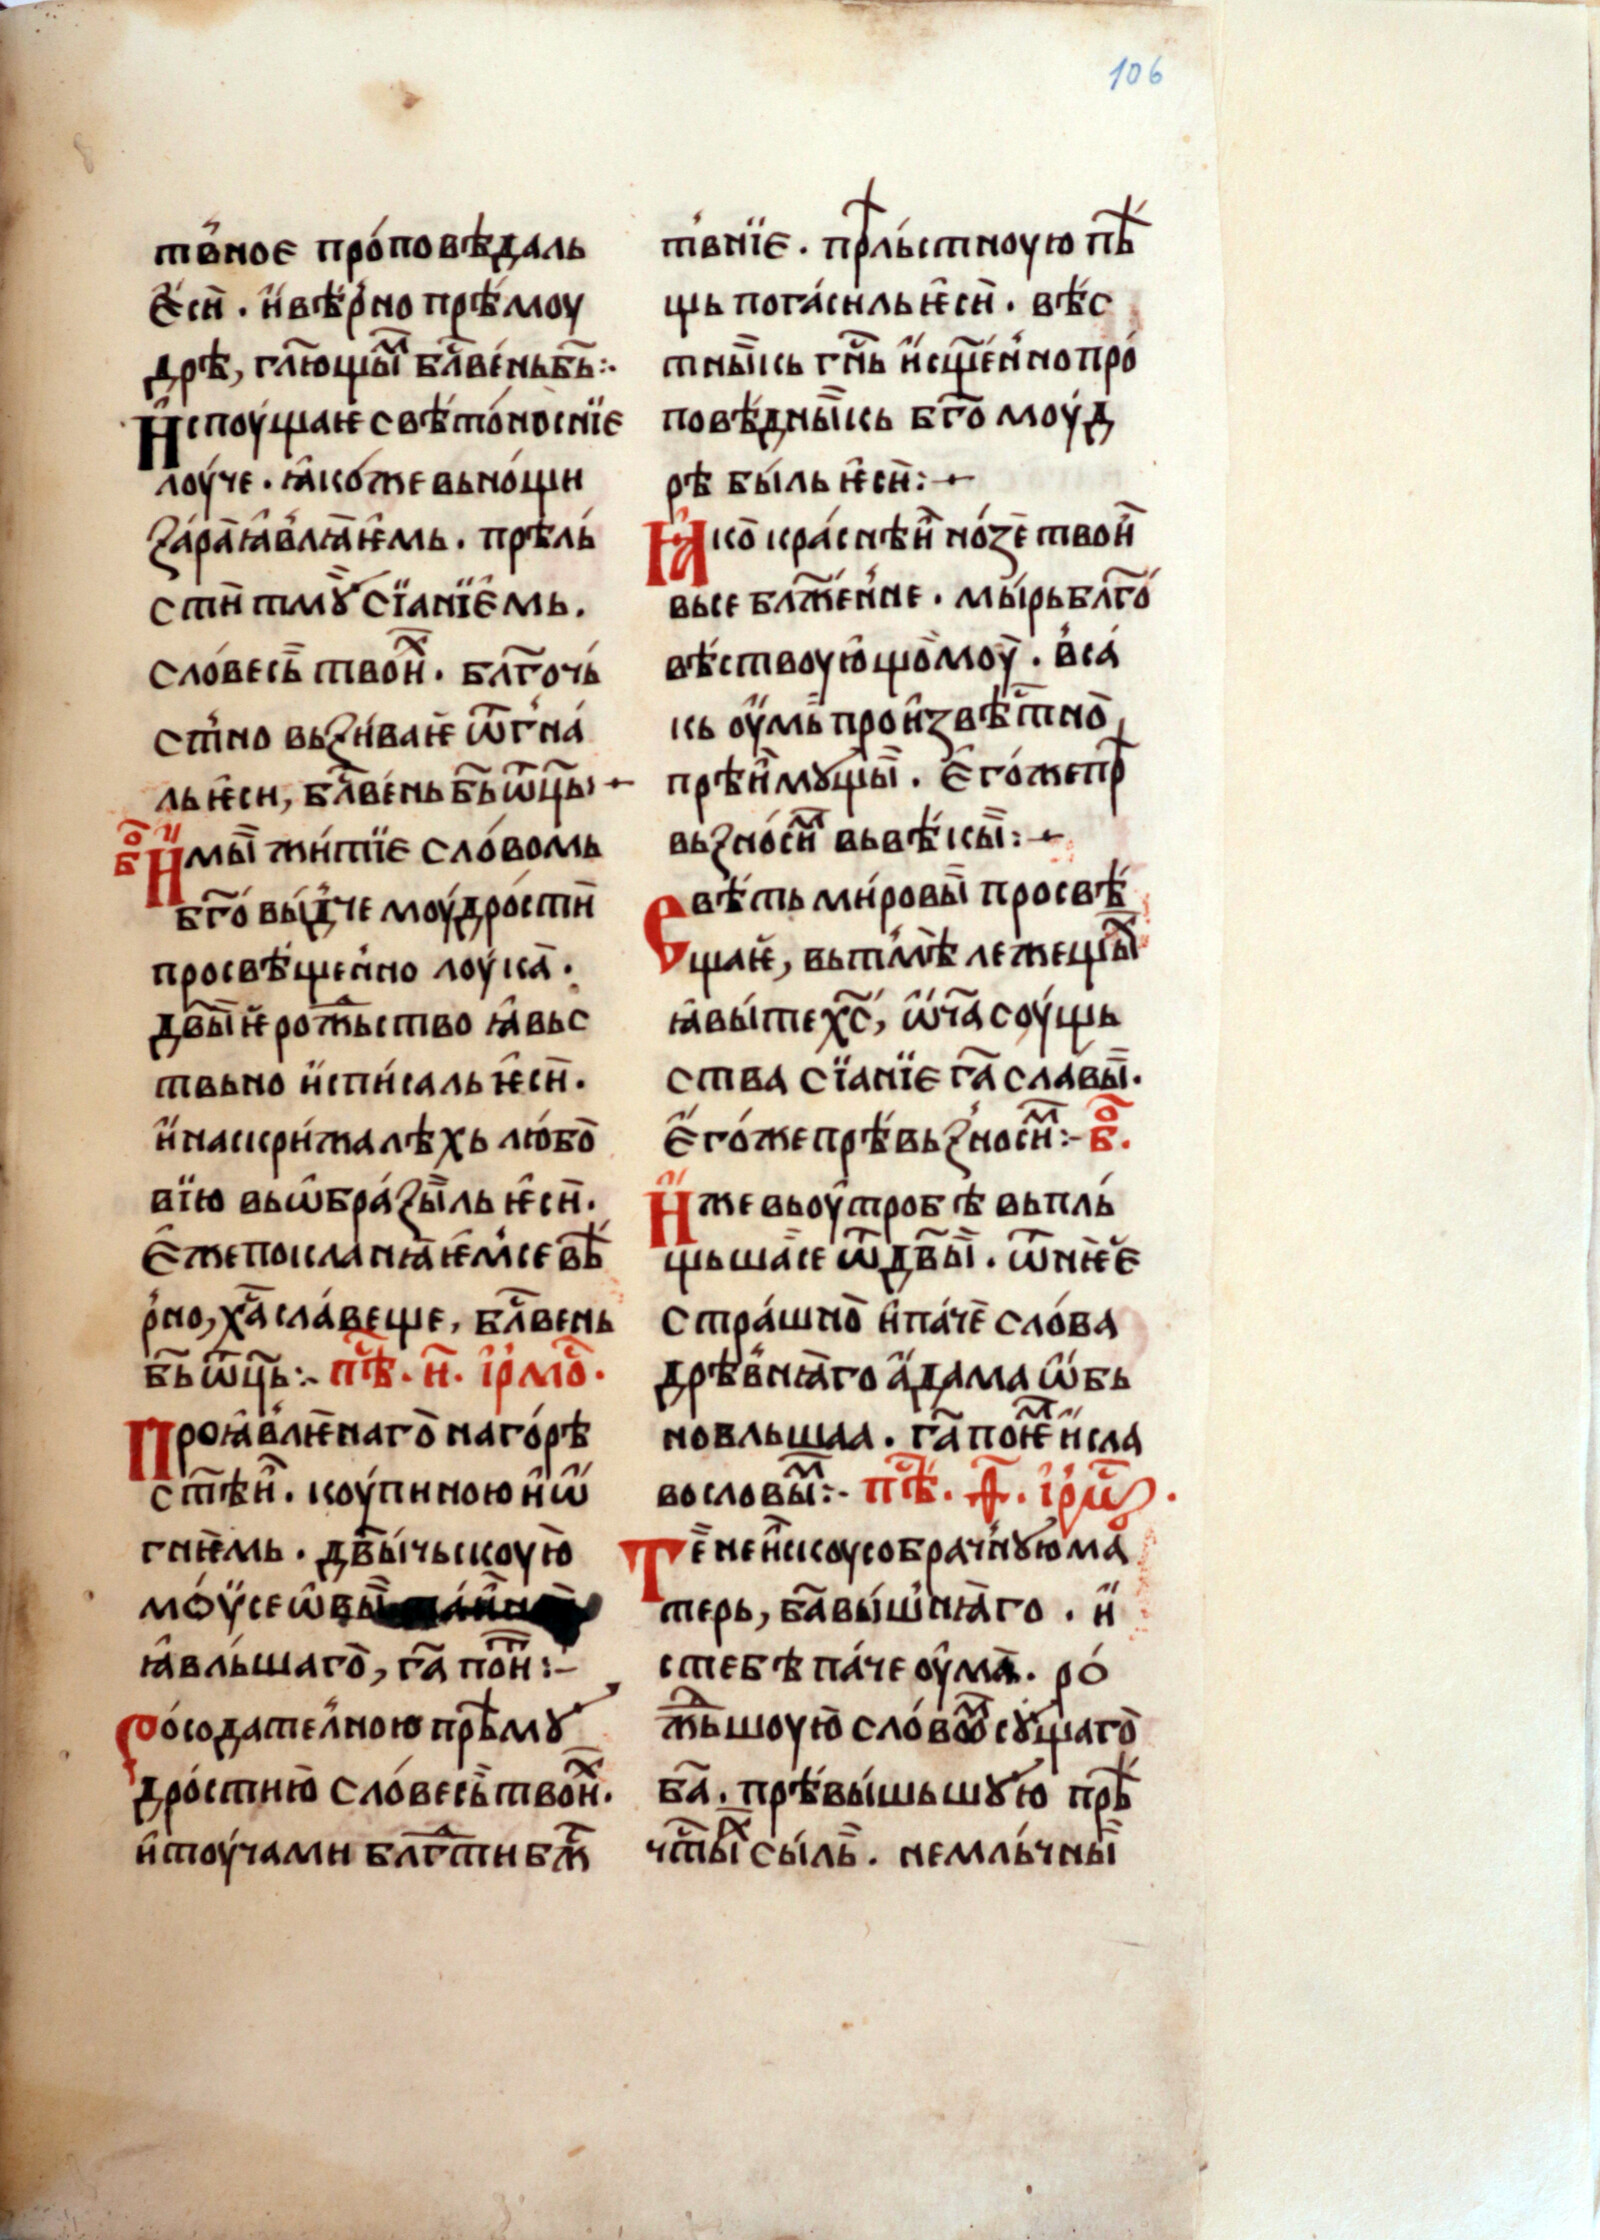 106
тв҆ное про́повѣдаль
є҆сѝ . и҆ вѣ́р҆но прѣ́моу
дрѣ, гл҃ющы̏ⷨ бл҃ве́нь бь҃:·
И҆споу́щаѥ свѣто́но̀снїе
лоу́че . ꙗ҆ко́же вь но́щи
ꙁа́ра̀ ꙗ҆в҆лꙗ̀ѥ҆мь . прѣ́ль́
стѝ тмꙋ̀ сїанїе҆мь .
сло́весь̏ твои҆ⷯ . бл҃гочь́
ст҆но вьꙁи́ваѥ҆ ѿг҆на́
ль ѥ҆си , бл҃ве́нь бь҃ ѿц҃ь :-
бⷪ҇ И҆мы̏ жи́тїе сло́вомь
бг҃о́вы́д҆че моу́дро́стѝ
просвѣ́щен҆но лоу́ка̀ .
дв҃ы̏ѥ рож҃ьство ꙗ҆вьс
твьно и҆спи́саль ѥ҆сѝ .
и҆ на скри́жалѣхь лю́бо̀
вїю вьѡ҆бра́ꙁы̏ль ѥ҆сѝ .
є҆же покланꙗ̀ѥм҆се вѣ́
р҆но , хⷭ҇а сла́веще , бл҃вень
бь҃ ѿц҃ь :- пⷭ҇ѣ . и҃ . і҆р҆мо̀ⷭ .
Проꙗ҆в҆лѥ҆наго̀ на го́рѣ
ст҃ѣи҆ . коу́пиною и҆ ѡ҆
гнѥ҆мь . дв҃ы́чьскоую̀
мо́ѵ̈сеѡ҆вы̏
ꙗ҆вль́шаго̀ , га҃ поⷨи҆ :-
Ро́содател҆ною прѣ́мꙋ
дро́стию̀ сло́весь̏ твои҆ⷯ .
и҆ тоу́чами бл҃гⷣти бж҃
тв҆нїе . прⷤль́стноую пѣ́
щь пога́силь ѥ҆сѝ . вѣ́с
тны̏кь гн҃ь и҆ сщ҃ен҆но про́
повѣ́дны̏кь бг҃о моу́д
рѣ бы́ль ѥ҆сѝ :-
Ꙗ҆ко̀ кра́снѣи҆ но́зѐ твои҆
высе бл҃же́н҆не . мы́рь бл҃го́
вѣ́ствоую҆що̀моу̀ . в҆са́
кь оу҆мь̏ прои҆ꙁвѣ́стно̀
прѣи҆мꙋщы̏ . Є҆го́же прⷤ
вьꙁно́сиⷨ вь вѣ́кы̏ :-
Свѣ́ть ми́ровы̏ просвѣ́
щаѥ҆ , вь тм҆ѣ лежещы̏ⷯ
ꙗ҆вы́те хс҃ , ѡ҆ч҃а соу́щь
ства сїанїе га҃ славы̏ .
Є҆го́же прѣ́вьꙁ҆носиⷨ :- бⷪ҇ .
И҆же вь оу҆тробѣ вьпль́
щьша̀се ѿ дв҃ы̏ . ѿ нѥ҆е
стра́шно̀ и҆ па́чѐ сло́ва
дрѣв҆нꙗ̀го а҆дама ѡ҆бь
новльшаа . га҃ поѥⷨ и҆ сла
вословы̏ⷨ :- пⷭ҇ѣ . ѳ҃ . і҆р҆мⷭѡ .
Тѐ неи҆скоусобрач҆нꙋю ма
терь , ба҃ вы́ш҆нꙗ̀го . и҆
с тебѣ па́че оу҆ма̀ . ро́
жⷣьшоую̀ сло́воⷨ сꙋщаго̀
ба҃ . прѣ́вы́шьшꙋю прѣ́
чⷭ҇ты̏ⷯ сы́ль̏ . немль́чны̏